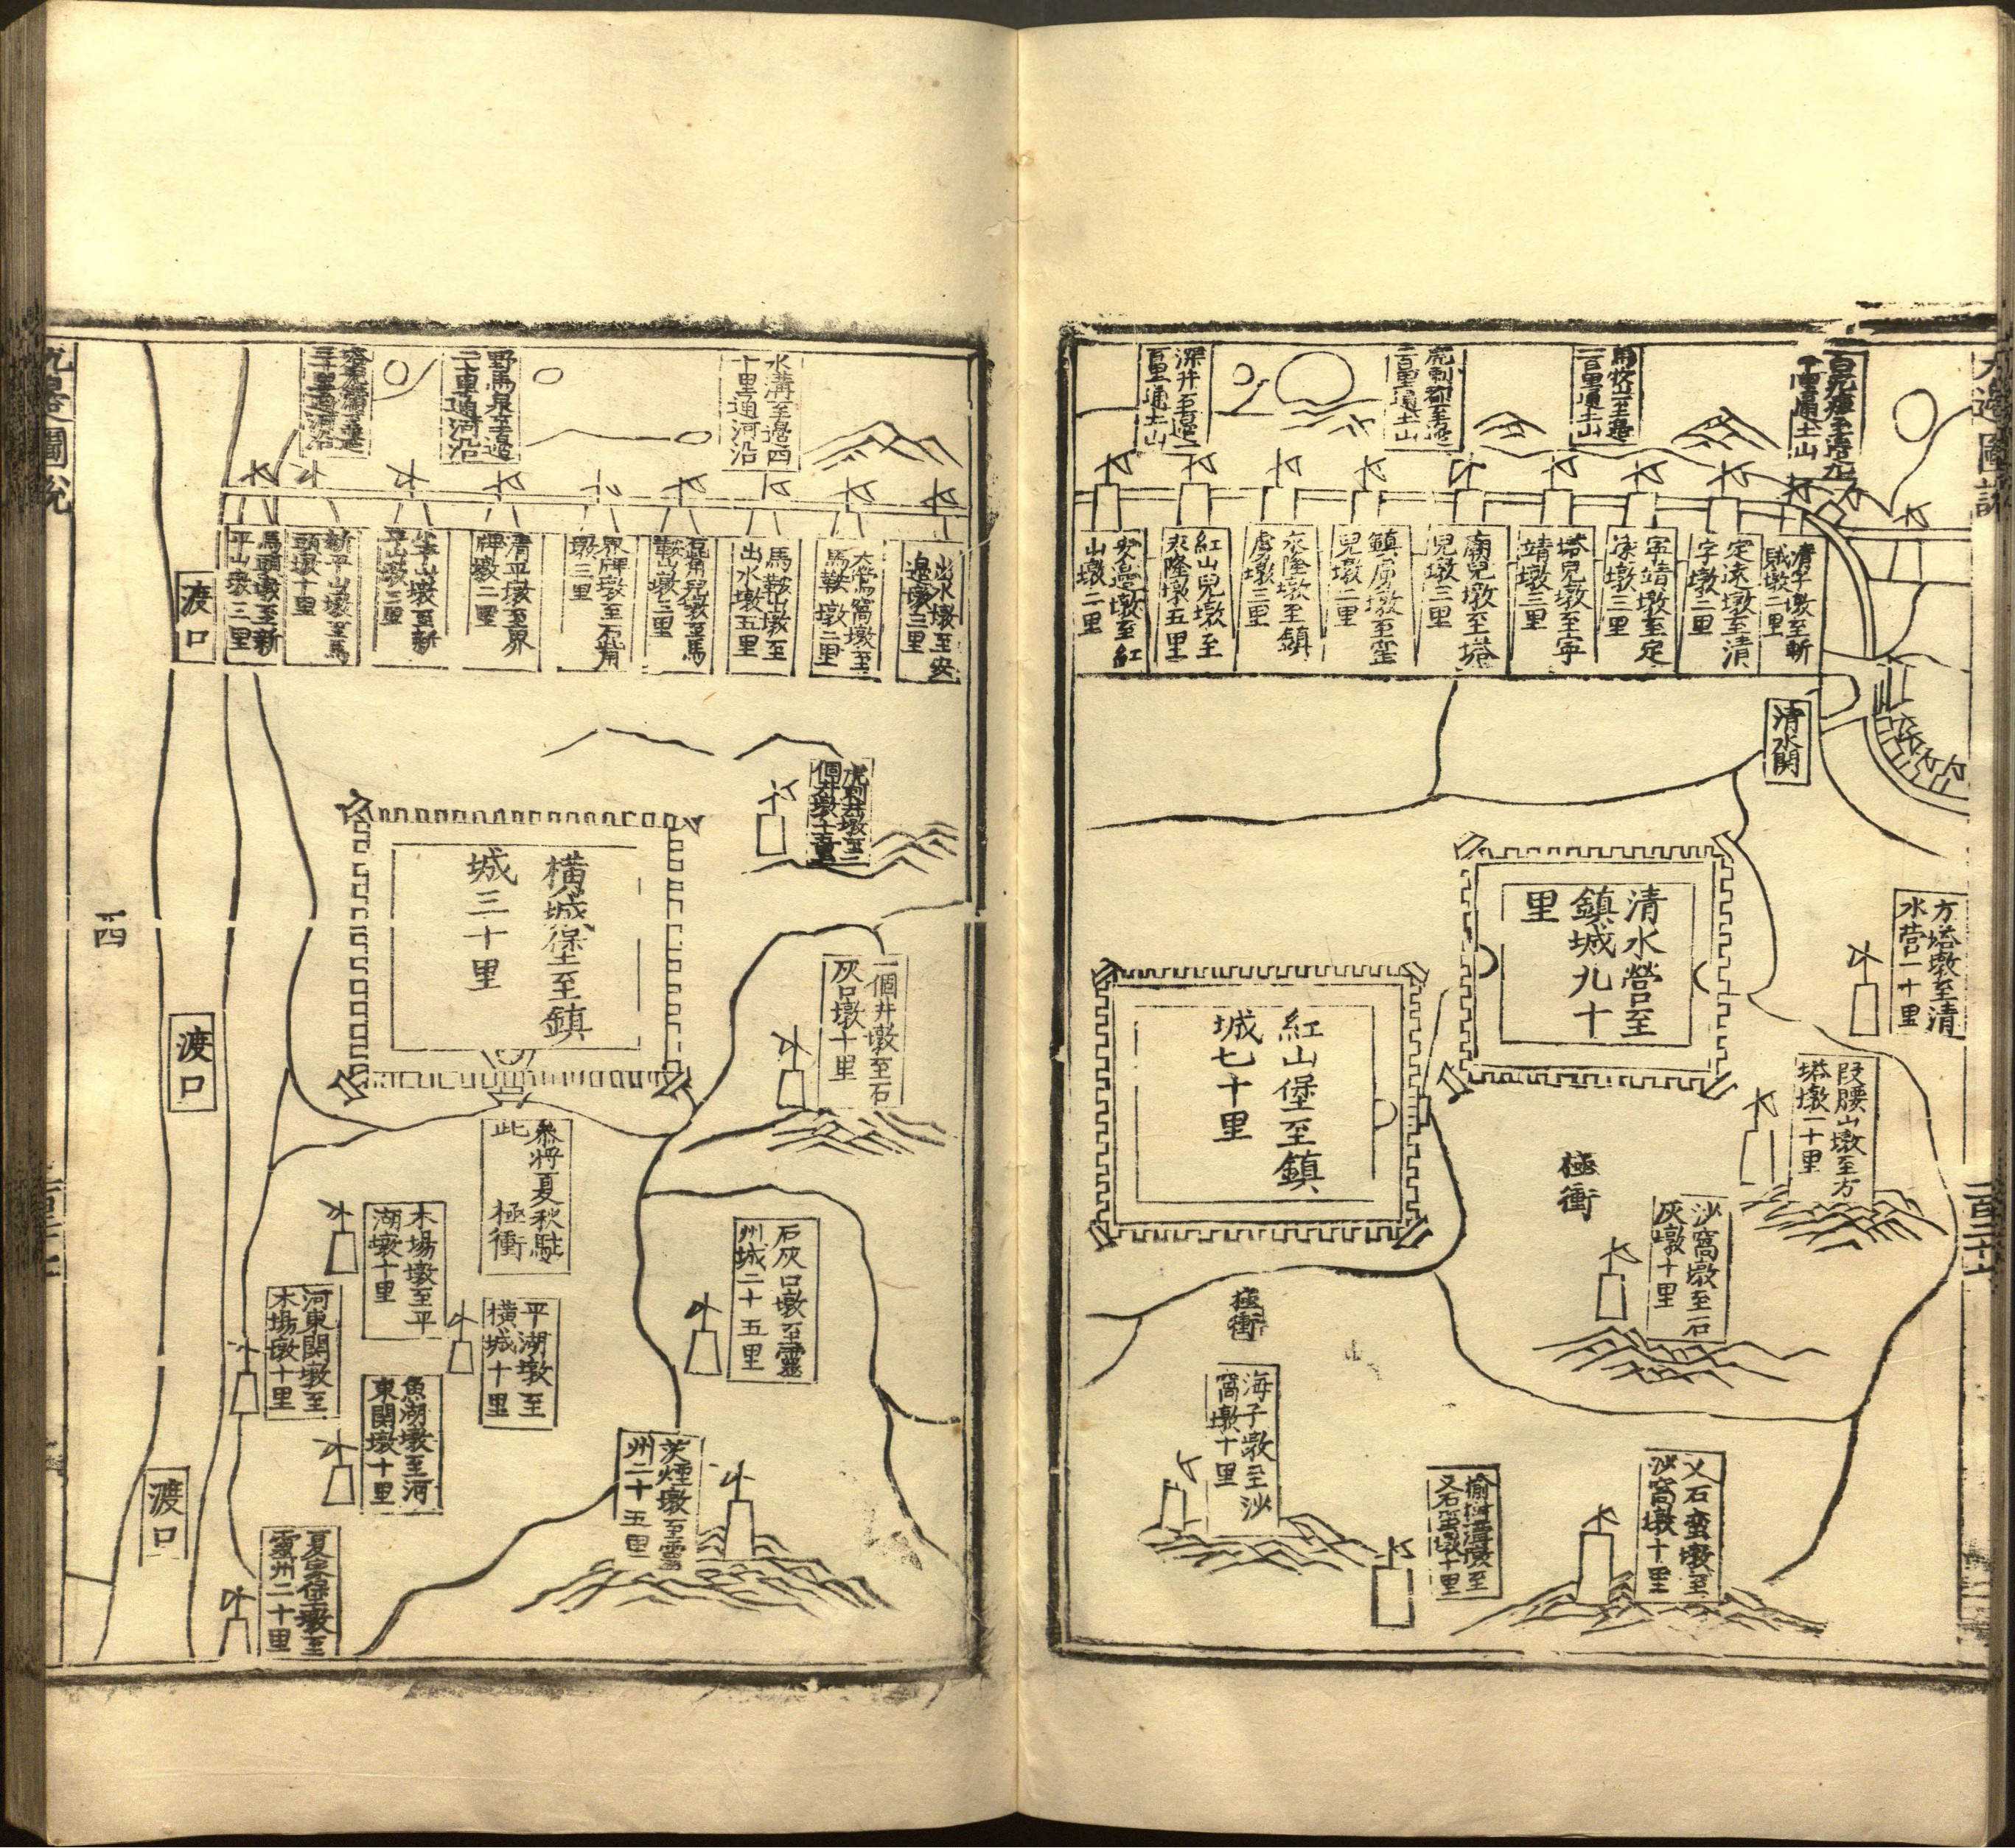 深井至邊
百里通土山
二百里通土山
二百里通土山
清平墩至斬
賊墩二里
定遠墩至清
字墩二里
寧靖墩至定
墩三里
塔兒墩至寧
靖墩三里
廟兒墩至塔
兒墩三里
鎮虜墩至
兒墩二里
來隆墩至鎮
虜墩三里
紅山兒墩至
來隆墩五里
安邊墩至紅
山墩二里
清水関
清水營至
鎮城九十
里
紅山堡至鎮
城七十里
方塔墩至清
水营一十里
段腰山墩至方
塔墩一十里
極衝
沙窩墩至石
灰墩十里
極衝
海子墩至沙
窩墩十里
乂石蛮墩至
沙窩墩十里
水溝至邊四
十里通河沿
野馬泉至邊
二十里通河沿
出水墩至安
邊墩三里
馬鞍墩二里
馬鞍山墩至
出水墩五里
鞍山墩三里
墩三里
清平墩至界
牌墩二里
平山墩三里
新平山墩至馬
頭墩十里
馬頭墩至新
平山墩三里
渡口
虎剌井墩至一
個井墩十里
橫城堡至鎮
城三十里
一個井墩至石
灰口墩十里
叅將夏秋駐
此　極衝
石灰口墩至靈
州城二十五里
木場墩至平
湖墩十里
平湖墩至
橫城十里
河東関墩至
木場墩十里
魚湖墩至河
東関墩十里
茨煙墩至靈
州二十五里
夏家堡墩至
靈州二十里
渡口
渡口
西